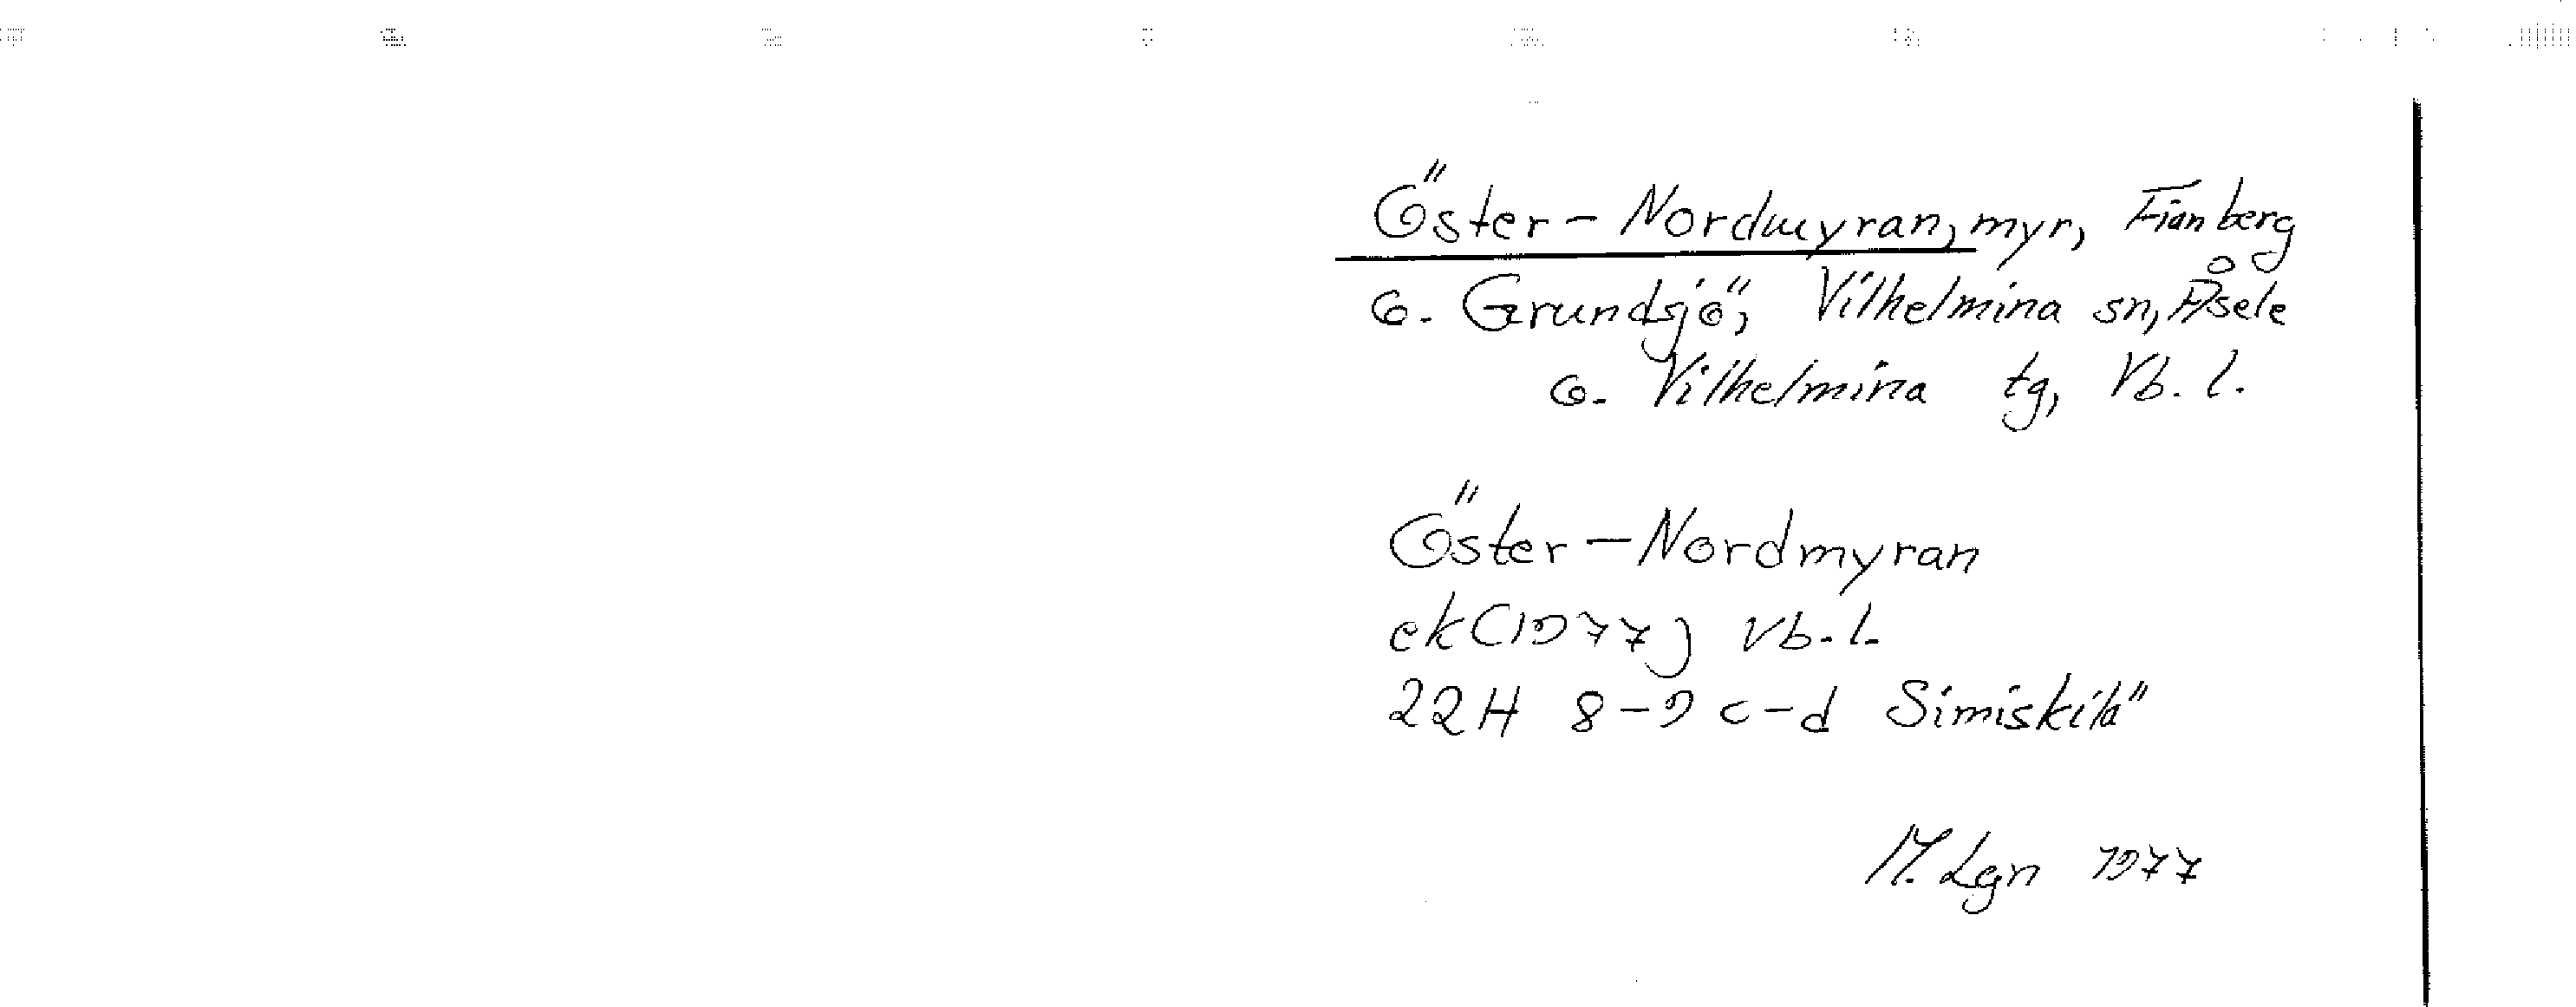 Öster-Nordmyran, myr, Fianberg
o. Grundsjö, Vilhelmina sn, Åsele
o. Vilhelmina tg, Vb. l.
Öster-Nordmyran
ek(1977) Vb. l.
22H 8-9 c-d Simiskilä
M. Lgn 1977